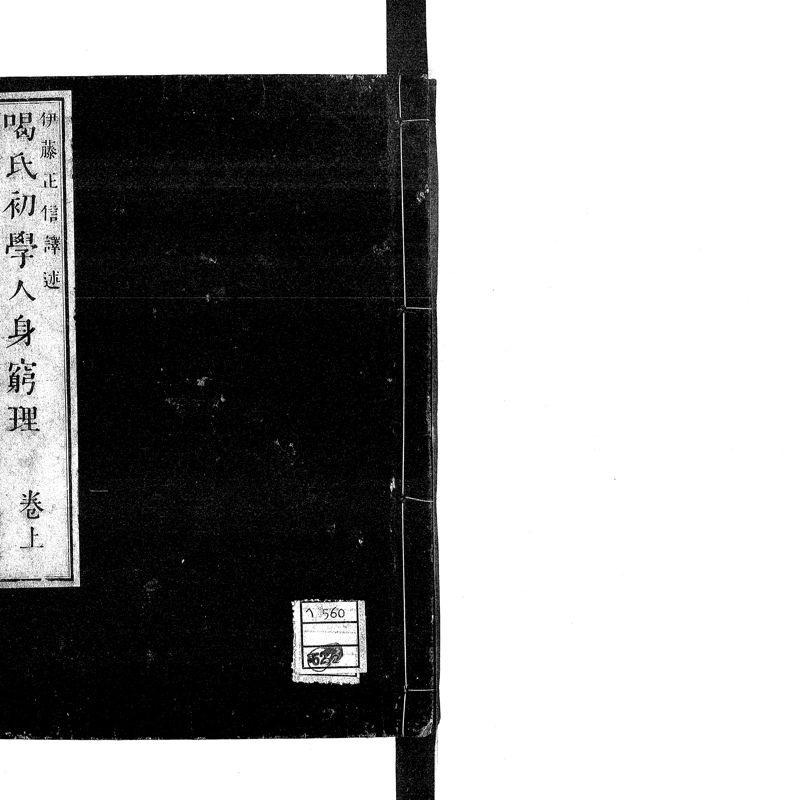 伊藤正信譯述
喝氏初學人身窮理 卷上
へ 560